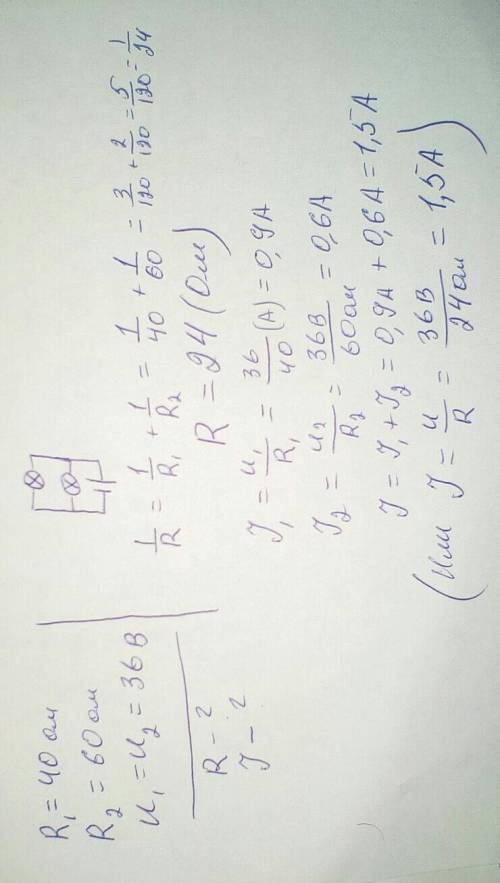 R₁ = 40 ом
R₂ = 60 ом
U₁ = U₂ = 36 В
R – ?
J – ?
1/R = 1/R₁ + 1/R₂ = 1/40 + 1/60 = 3/120 + 2/120 = 5/120 = 1/24
R = 24 (Ом)
J₁ = U₁/R₁ = 36/40 (А) = 0,9 А
J₂ = U₂/R₂ = 36В/60ом = 0,6 А
J = J₁ + J₂ = 0,9 А + 0,6 А = 1,5 А
(или J = U/R = 36В/24ом = 1,5 А)